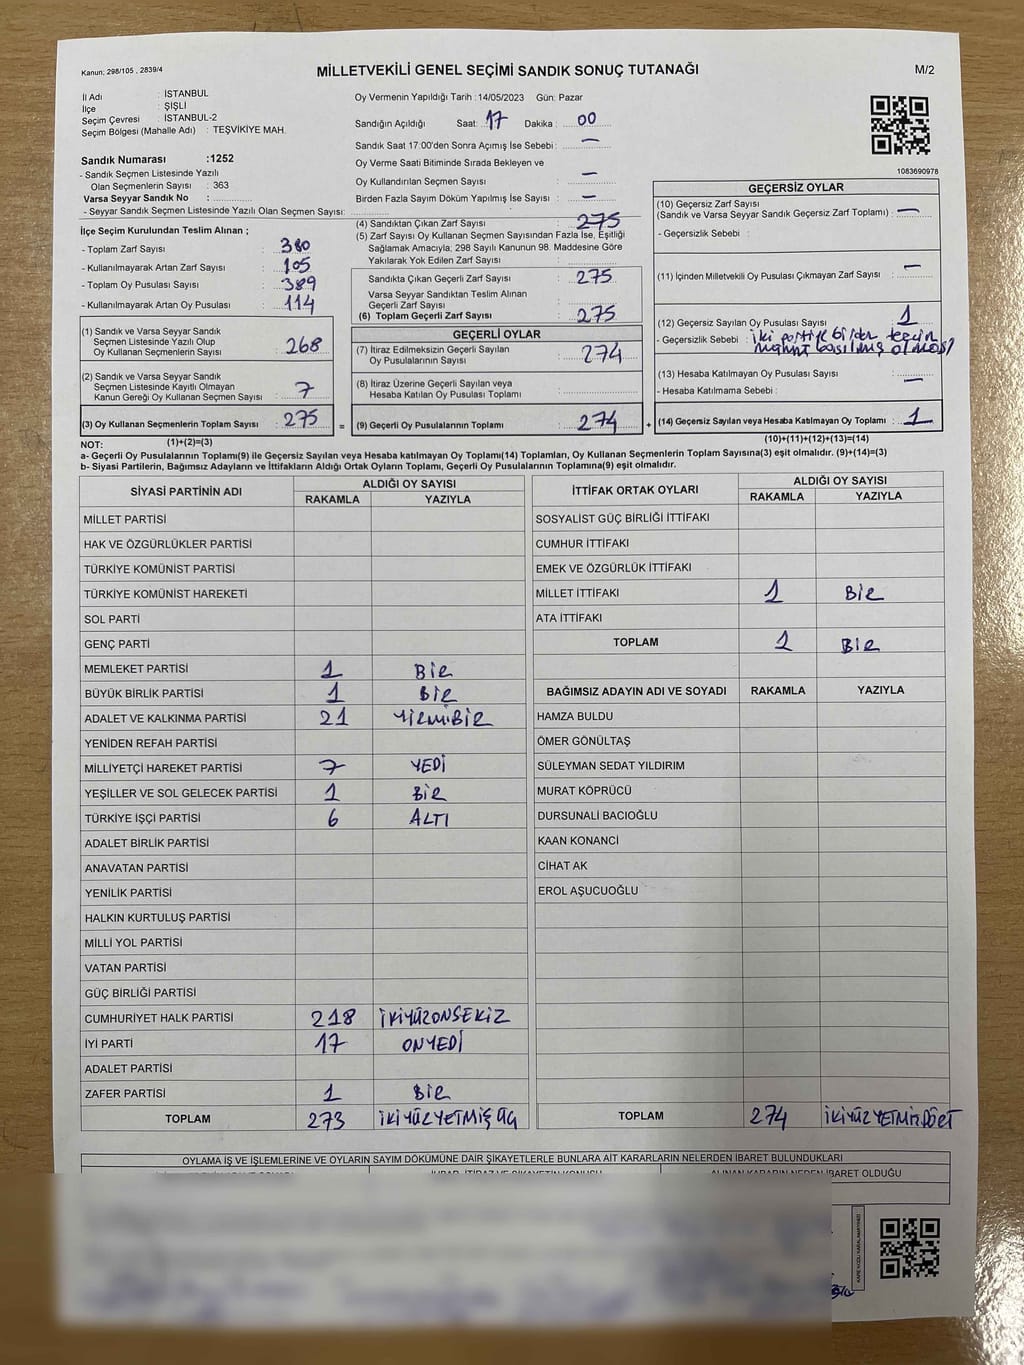 Kanun; 298/105 , 2839/4
MİLLETVEKİLİ GENEL SEÇİMİ SANDIK SONUÇ TUTANAĞI
M/2
İl Adı : İSTANBUL
İlçe : ŞİŞLİ
Seçim Çevresi : İSTANBUL-2
Seçim Bölgesi (Mahalle Adı) : TEŞVİKİYE MAH.
Sandık Numarası :1252
- Sandık Seçmen Listesinde Yazılı
Olan Seçmenlerin Sayısı : 363
Varsa Seyyar Sandık No :
- Seyyar Sandık Seçmen Listesinde Yazılı Olan Seçmen Sayısı:
Oy Vermenin Yapıldığı Tarih : 14/05/2023 Gün: Pazar
Sandığın Açıldığı Saat: 17 Dakika : 00
Sandık Saat 17:00'den Sonra Açımış İse Sebebi : —
Oy Verme Saati Bitiminde Sırada Bekleyen ve
Oy Kullandırılan Seçmen Sayısı : —
Birden Fazla Sayım Döküm Yapılmış İse Sayısı : —
1083690978
İlçe Seçim Kurulundan Teslim Alınan ;
- Toplam Zarf Sayısı : 380
- Kullanılmayarak Artan Zarf Sayısı : 105
- Toplam Oy Pusulası Sayısı : 389
- Kullanılmayarak Artan Oy Pusulası : 114
(1) Sandık ve Varsa Seyyar Sandık
Seçmen Listesinde Yazılı Olup
Oy Kullanan Seçmenlerin Sayısı : 268
(2) Sandık ve Varsa Seyyar Sandık
Seçmen Listesinde Kayıtlı Olmayan
Kanun Gereği Oy Kullanan Seçmen Sayısı : 7
(3) Oy Kullanan Seçmenlerin Toplam Sayısı : 275 =
(4) Sandıktan Çıkan Zarf Sayısı : 275
(5) Zarf Sayısı Oy Kullanan Seçmen Sayısından Fazla İse, Eşitliği
Sağlamak Amacıyla; 298 Sayılı Kanunun 98. Maddesine Göre
Yakılarak Yok Edilen Zarf Sayısı :
Sandıkta Çıkan Geçerli Zarf Sayısı : 275
Varsa Seyyar Sandıktan Teslim Alınan
Geçerli Zarf Sayısı :
(6) Toplam Geçerli Zarf Sayısı : 275
GEÇERLİ OYLAR
(7) İtiraz Edilmeksizin Geçerli Sayılan
Oy Pusulalarının Sayısı : 274
(8) İtiraz Üzerine Geçerli Sayılan veya
Hesaba Katılan Oy Pusulası Toplamı :
(9) Geçerli Oy Pusulalarının Toplamı : 274 +
GEÇERSİZ OYLAR
(10) Geçersiz Zarf Sayısı
(Sandık ve Varsa Seyyar Sandık Geçersiz Zarf Toplamı) : —
- Geçersizlik Sebebi :
(11) İçinden Milletvekili Oy Pusulası Çıkmayan Zarf Sayısı : —
(12) Geçersiz Sayılan Oy Pusulası Sayısı : 1
- Geçersizlik Sebebi : iki partiye birden tercih
mührü basılmış olması
(13) Hesaba Katılmayan Oy Pusulası Sayısı : —
- Hesaba Katılmama Sebebi :
(14) Geçersiz Sayılan veya Hesaba Katılmayan Oy Toplamı : 1
NOT: (1)+(2)=(3) (10)+(11)+(12)+(13)=(14)
a- Geçerli Oy Pusulasının Toplamı(9) ile Geçersiz veya Hesaba Katılmayan Oy Toplamı(14) Toplamları, Oy Kullanan Seçmenlerin Toplam Sayısına(3) eşit olmalıdır. (9)+(14)=(3)
b- Siyasi Partilerin, Bağımsız Adayların ve İttifakların Aldığı Ortak Oyların Toplamı, Geçerli Oy Pusulalarının Toplamına(9) eşit olmalıdır.
SİYASİ PARTİNİN ADI ALDIĞI OY SAYISI
RAKAMLA YAZIYLA
MİLLET PARTİSİ
HAK VE ÖZGÜRLÜKLER PARTİSİ
TÜRKİYE KOMÜNİST PARTİSİ
TÜRKİYE KOMÜNİST HAREKETİ
SOL PARTİ
GENÇ PARTİ
MEMLEKET PARTİSİ 1 BİR
BÜYÜK BİRLİK PARTİSİ 1 BİR
ADALET VE KALKINMA PARTİSİ 21 YİRMİBİR
YENİDEN REFAH PARTİSİ
MİLLİYETÇİ HAREKET PARTİSİ 7 YEDİ
YEŞİLLER VE SOL GELECEK PARTİSİ 1 BİR
TÜRKİYE İŞÇİ PARTİSİ 6 ALTI
ADALET BİRLİK PARTİSİ
ANAVATAN PARTİSİ
YENİLİK PARTİSİ
HALKIN KURTULUŞ PARTİSİ
MİLLİ YOL PARTİSİ
VATAN PARTİSİ
GÜÇ BİRLİĞİ PARTİSİ
CUMHURİYET HALK PARTİSİ 218 İKİYÜZONSEKİZ
İYİ PARTİ 17 ONYEDİ
ADALET PARTİSİ
ZAFER PARTİSİ 1 BİR
TOPLAM 273 İKİYÜZYETMİŞÜÇ
İTTİFAK ORTAK OYLARI ALDIĞI OY SAYISI
RAKAMLA YAZIYLA
SOSYALİST GÜÇ BİRLİĞİ İTTİFAKI
CUMHUR İTTİFAKI
EMEK VE ÖZGÜRLÜK İTTİFAKI
MİLLET İTTİFAKI 1 BİR
ATA İTTİFAKI
TOPLAM 1 BİR
BAĞIMSIZ ADAYIN ADI VE SOYADI RAKAMLA YAZIYLA
HAMZA BULDU
ÖMER GÖNÜLTAŞ
SÜLEYMAN SEDAT YILDIRIM
MURAT KÖPRÜCÜ
DURSUNALİ BACIOĞLU
KAAN KONANCİ
CİHAT AK
EROL AŞUCUOĞLU
TOPLAM 274 İKİYÜZYETMİŞDÖRT
OYLAMA İŞ VE İŞLEMLERİNE VE OYLARIN SAYIM DÖKÜMÜNE DAİR ŞİKAYETLERLE BUNLARA AİT KARARLARIN NELERDEN İBARET BULUNDUKLARI
İHBAR, İTİRAZ VE ŞİKAYETİN KONUSU
ALINAN KARARIN NEDEN İBARET OLDUĞU